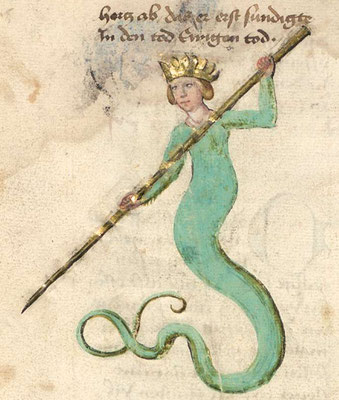 hertz ab das er erst sundigte
In den tod Ewigen tod.